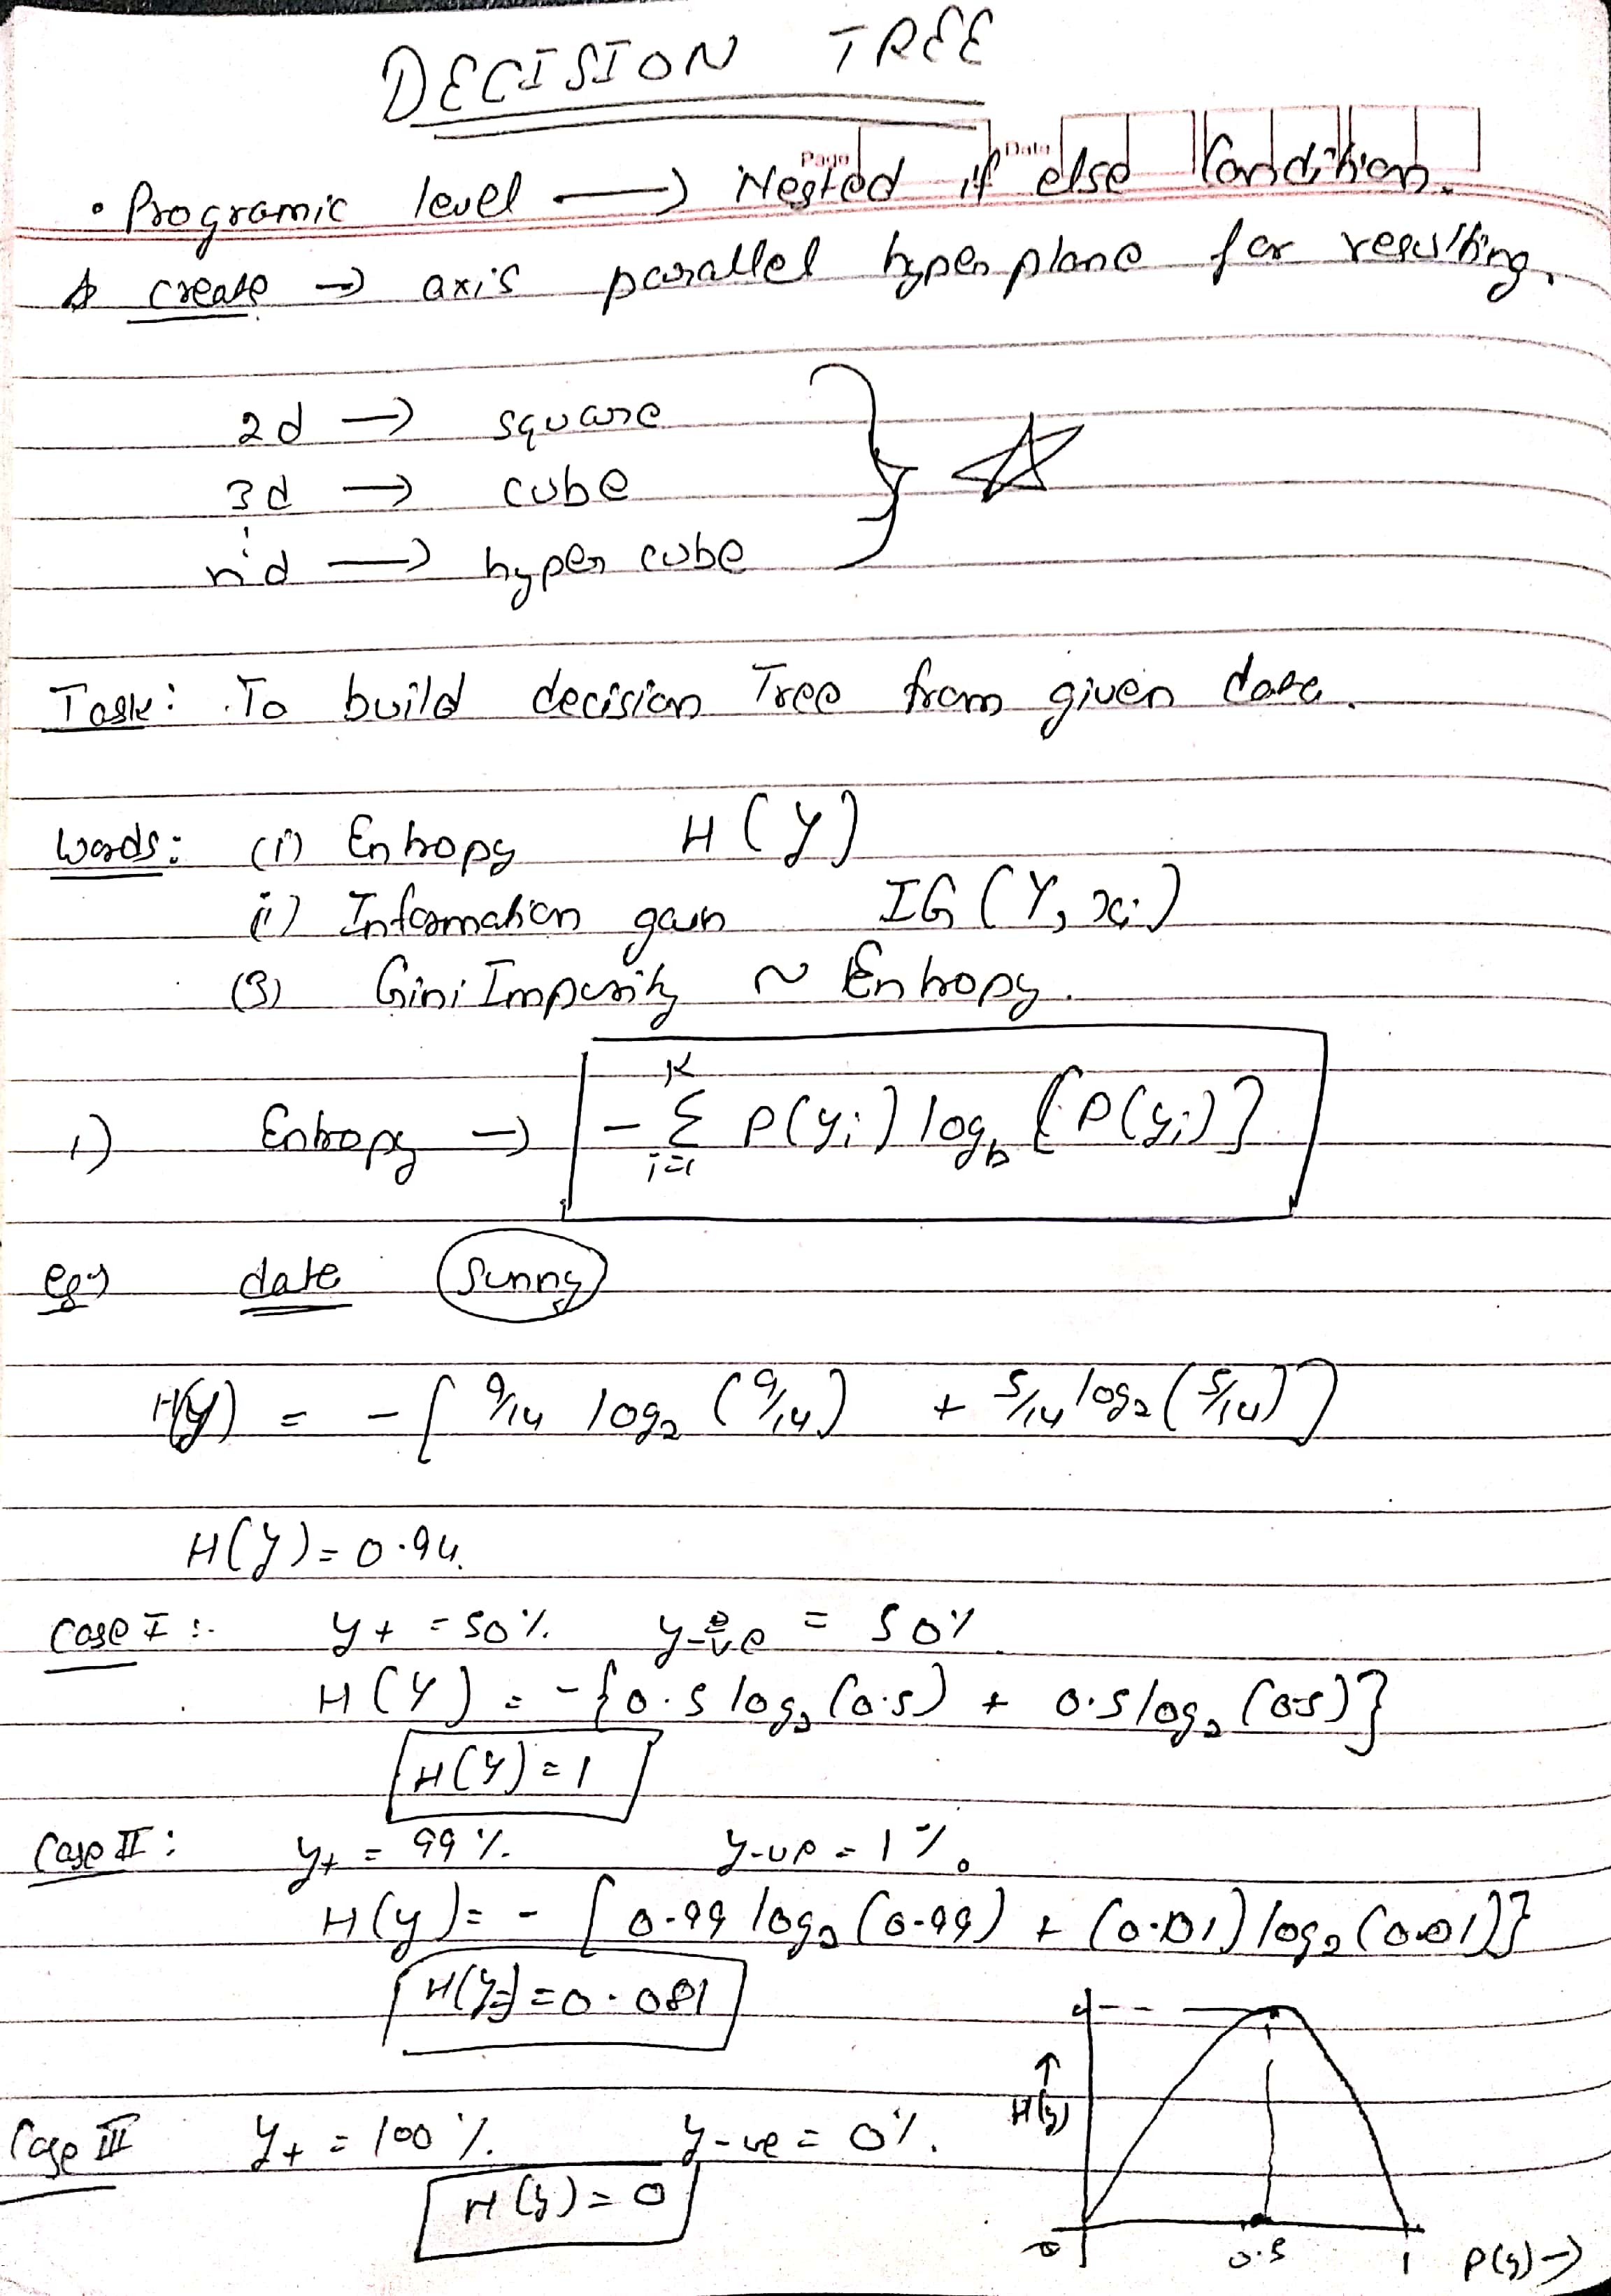 DECISION TREE
Page Date
• Programic level → Nested if else Condition.
create → axis parallel hyper plane for resulting.
2d → square
3d → cube
nd → hyper cube
Task: To build decision Tree from given data.
Words: (i) Entropy H(y)
ii) Information gain IG(Y, xi)
(3) Gini Impurity ~ Entropy.
1) Entropy → - K Σ i=1 P(yi) log_b {P(yi)}
eg date Sunny
H(y) = -[9/14 log2 (9/14) + 5/14 log2 (5/14)]
H(y) = 0.94
Case I: y+ = 50% y-ve = 50%
H(Y) = -{0.5 log2 (0.5) + 0.5 log2 (0.5)}
H(y) = 1
Case II: y+ = 99% y-ve = 1%
H(y) = -[0.99 log2 (0.99) + (0.01) log2 (0.01)}
H(y) = 0.081
1
H(y)
Case III y+ = 100% y-ve = 0%.
H(y) = 0
0 0.5 1 P(y) →